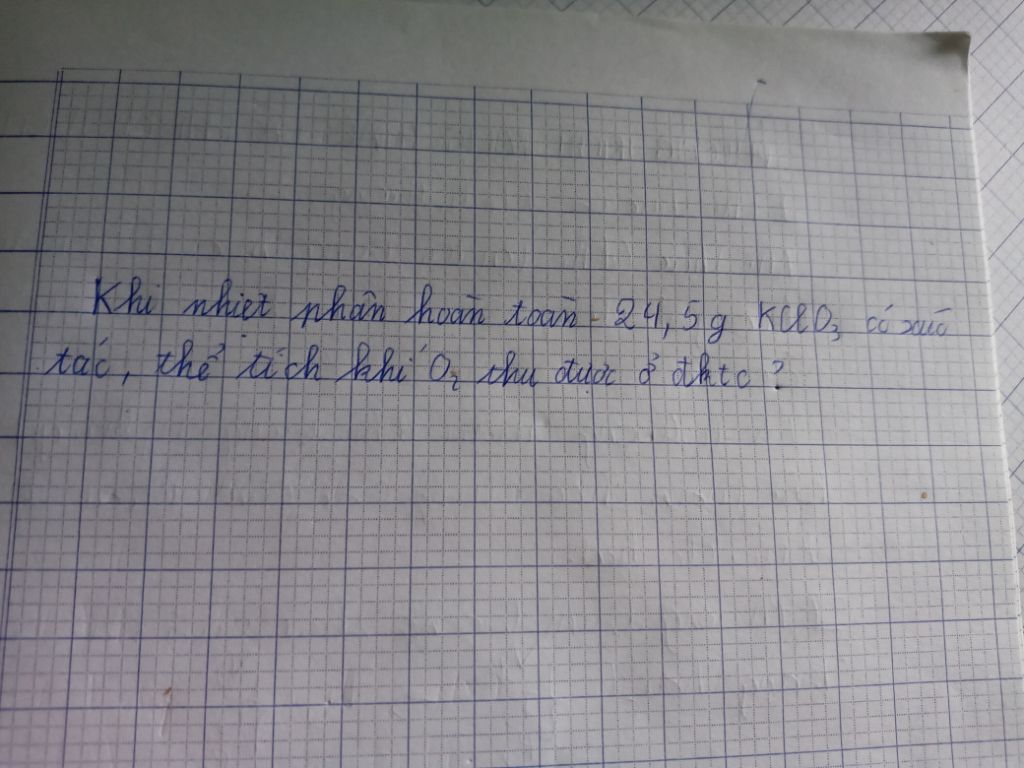 Khi nhiệt phân hoàn toàn 24,5g KClO₃ có xúc
tác, thể tích khí O₂ thu được ở đktc ?